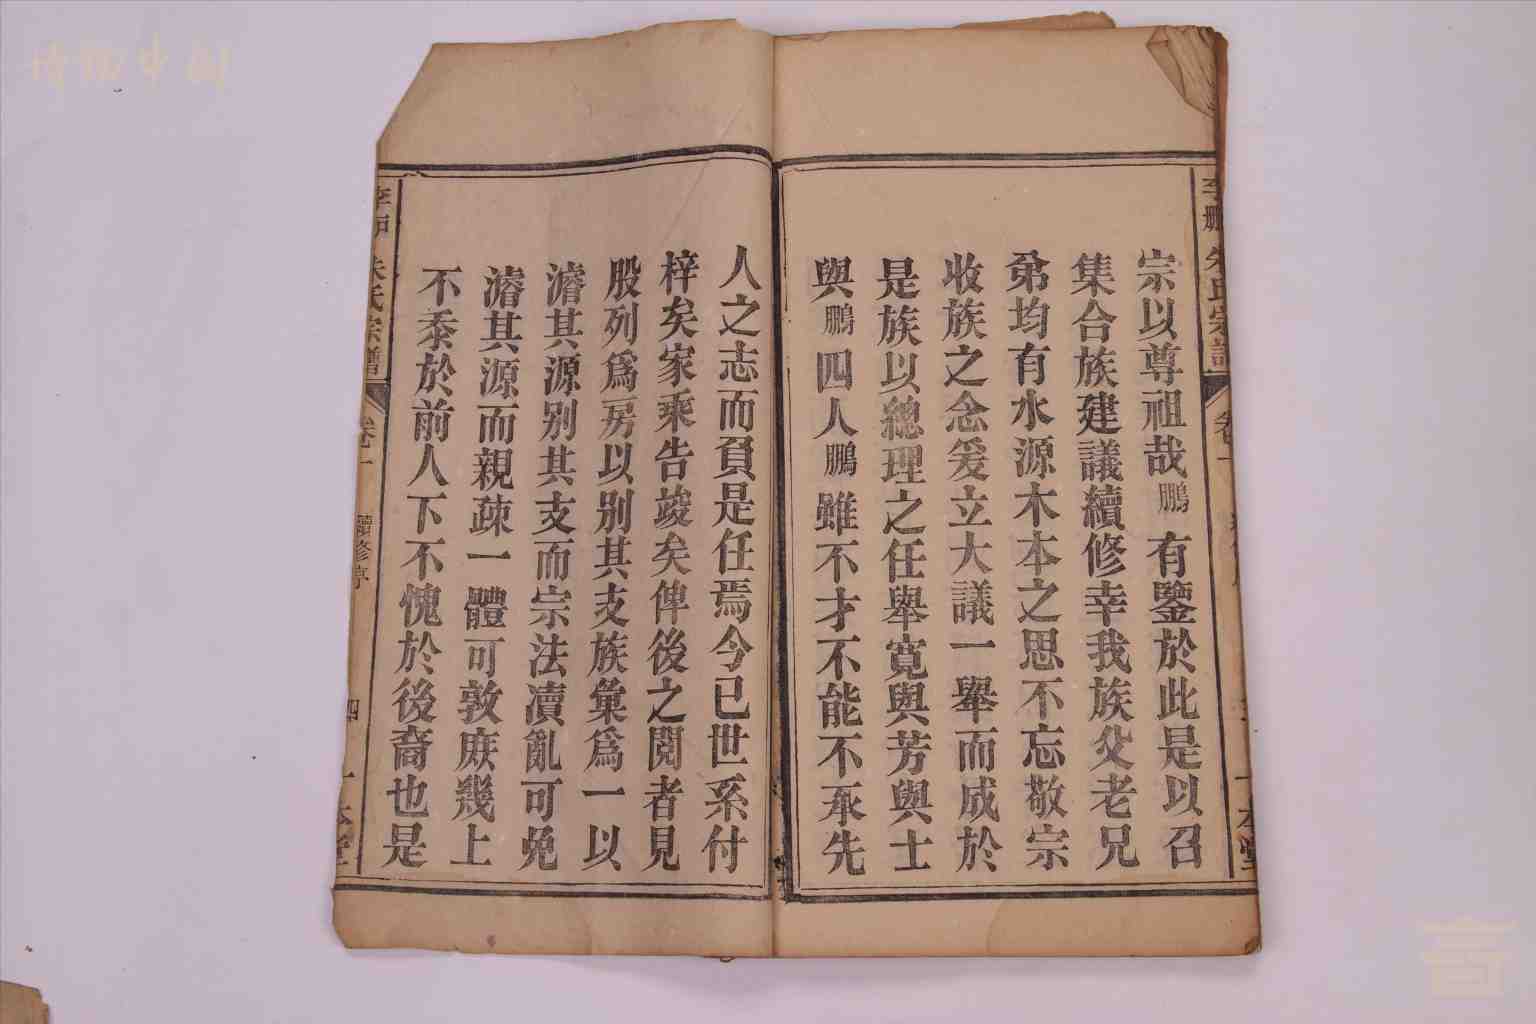 宗以尊祖哉鵬有鑒於此是以召
集合族建議續修幸我族父老兄
弟均有水源木本之思不忘敬宗
收族之念爰立大議一舉而成於
是族以總理之任舉寬與芳與士
與鵬四人鵬雖不才不能不承先
人之志而負是任焉今已世系付
梓矣家乘告竣矣俾後之閱者見
股列爲房以别其支族彙爲一以
濬其源别其支而宗法凟亂可免
濬其源而親疎一體可敦庶幾上
不忝於前人下不愧於後裔也是
朱氏宗譜
卷一
續修序
四